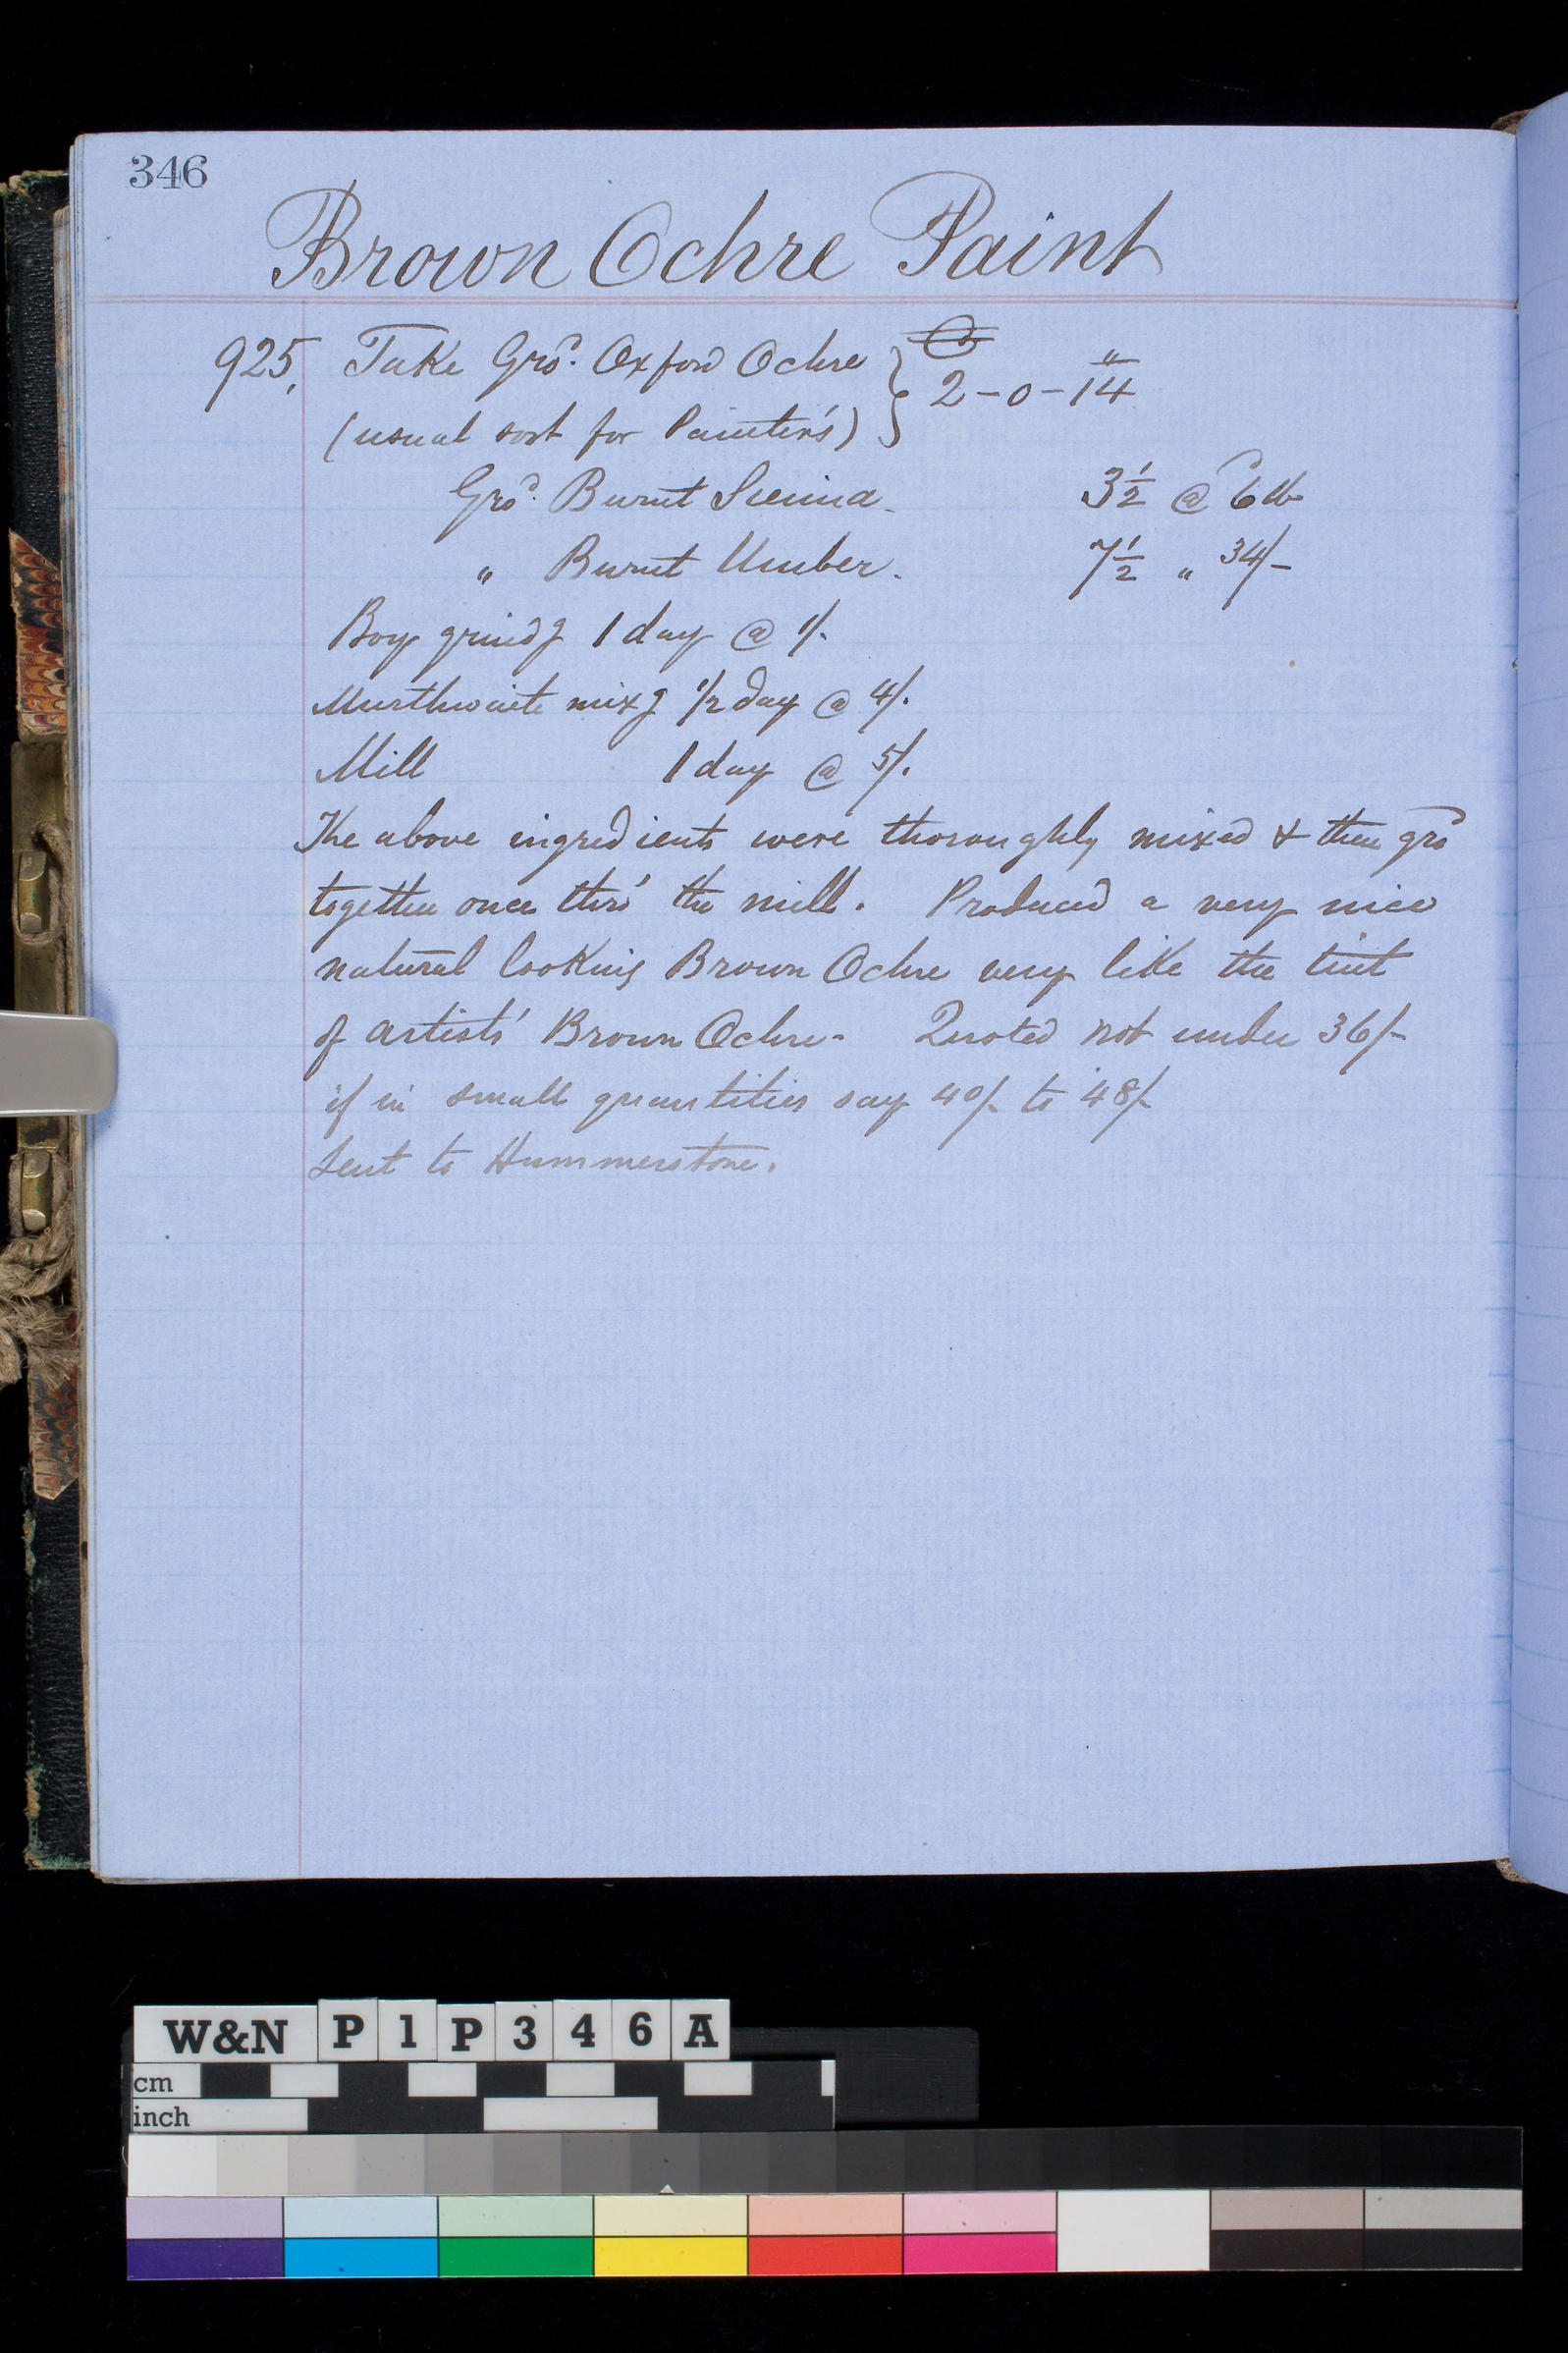 346
Brown Ochre Paint
925, Take Gro^d. Oxford Ochre } C "
(usual sort for Painter's) } 2-0-14
Gro^d. Burnt Sienna. 3½ @ 6
" Burnt Umber. 7½ " 34/-
Boy grind^g 1 day @ 1/.
Murthwaite mix^g 1/2 day @ 4/.
Mill 1 day @ 5/.
The above ingredients were thoroughly mixed & then gro^d
together once thro' the mill. Produced a very nice
natural looking Brown Ochre very like the tint
of artists' Brown Ochre- Quoted not under 36/-
if in small quantities say 40/- to 48/-
Sent to Hummerstone.
W&N P1P346A
cm
inch